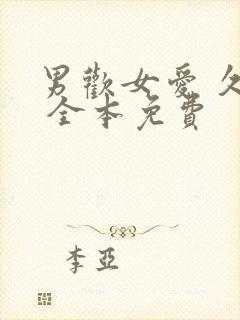 男歡女愛 久
全本免費
李亞